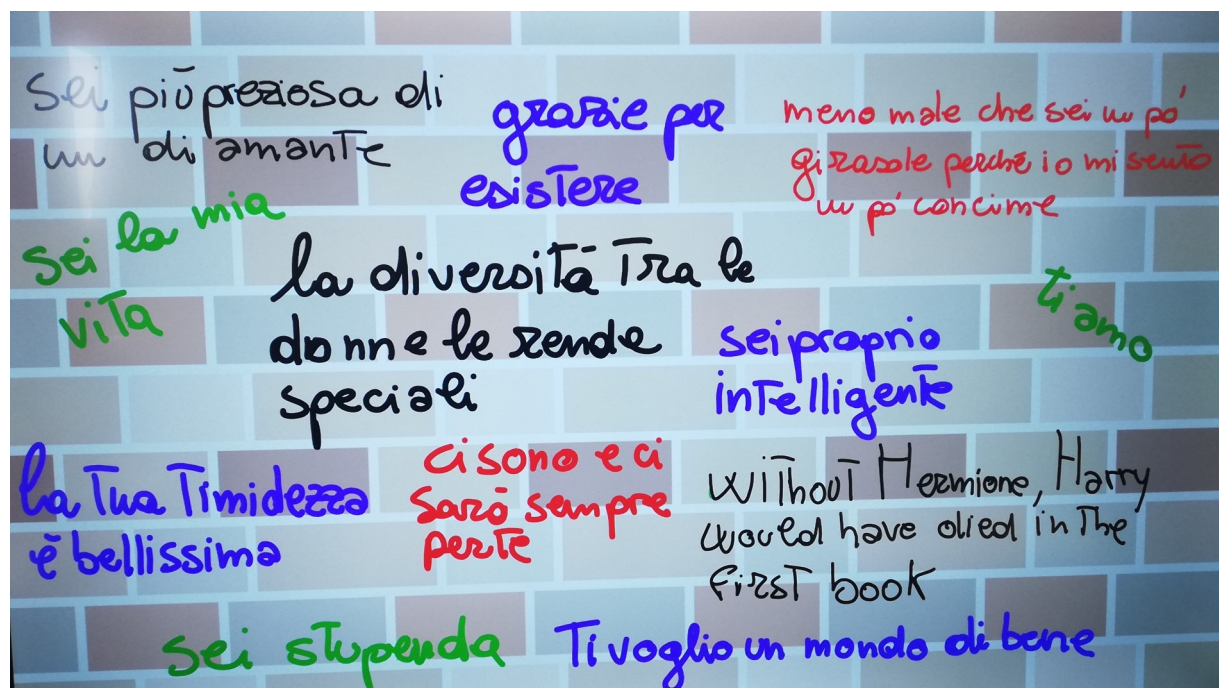 sei più preziosa di
un diamante
grazie per
esistere
meno male che sei un pó
girasole perché io mi sento
un pó concime
sei la mia
vita
la diversità tra le
donne le rende
speciali
ti amo
sei proprio
intelligente
la tua timidezza
è bellissima
ci sono e ci
sarò sempre
per te
without Hermione, Harry
would have died in the
first book
sei stupenda
Ti voglio un mondo di bene